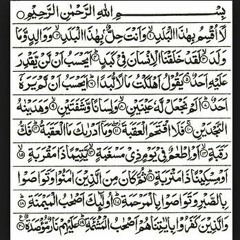 بِسْمِ اللّٰهِ الرَّحْمٰنِ الرَّحِيْمِ
لَاۤ اُقْسِمُ بِهٰذَا الْبَلَدِ ۙ وَاَنْتَ حِلٌّۢ بِهٰذَا الْبَلَدِ ۙ وَوَالِدٍ وَّمَا
وَلَدَ ۙ لَقَدْ خَلَقْنَا الْاِنْسَانَ فِيْ كَبَدٍ ؕ اَيَحْسَبُ اَنْ لَّنْ يَّقْدِرَ
عَلَيْهِ اَحَدٌ ۘ يَقُوْلُ اَهْلَكْتُ مَالًا لُّبَدًا ؕ اَيَحْسَبُ اَنْ لَّمْ يَرَهٗۤ
اَحَدٌ ؕ اَلَمْ نَجْعَلْ لَّهٗ عَيْنَيْنِ ۙ وَلِسَانًا وَّشَفَتَيْنِ ۙ وَهَدَيْنٰهُ
النَّجْدَيْنِ ۚ فَلَا اقْتَحَمَ الْعَقَبَةَ ۖ وَمَاۤ اَدْرٰىكَ مَا الْعَقَبَةُ ؕ فَكُّ
رَقَبَةٍ ۙ اَوْ اِطْعٰمٌ فِيْ يَوْمٍ ذِيْ مَسْغَبَةٍ ۙ يَّتِيْمًا ذَا مَقْرَبَةٍ ۙ
اَوْ مِسْكِيْنًا ذَا مَتْرَبَةٍ ؕ ثُمَّ كَانَ مِنَ الَّذِيْنَ اٰمَنُوْا وَتَوَاصَوْا
بِالصَّبْرِ وَتَوَاصَوْا بِالْمَرْحَمَةِ ؕ اُولٰٓئِكَ اَصْحٰبُ الْمَيْمَنَةِ ؕ
وَالَّذِيْنَ كَفَرُوْا بِاٰيٰتِنَا هُمْ اَصْحٰبُ الْمَشْـَٔمَةِ ؕ عَلَيْهِمْ نَارٌ مُّؤْصَدَةٌ